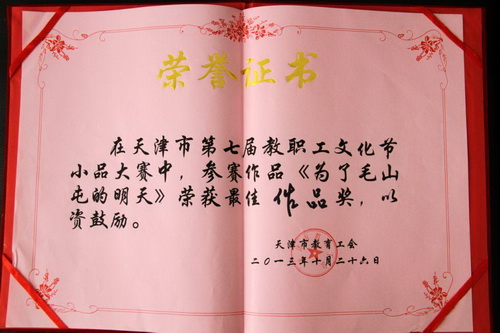 荣誉证书
在天津市第七届教职工文化节
小品大赛中，参赛作品《为了毛山
屯的明天》荣获最佳作品奖，以
资鼓励。
天津市教育工会
二〇一三年十月二十六日